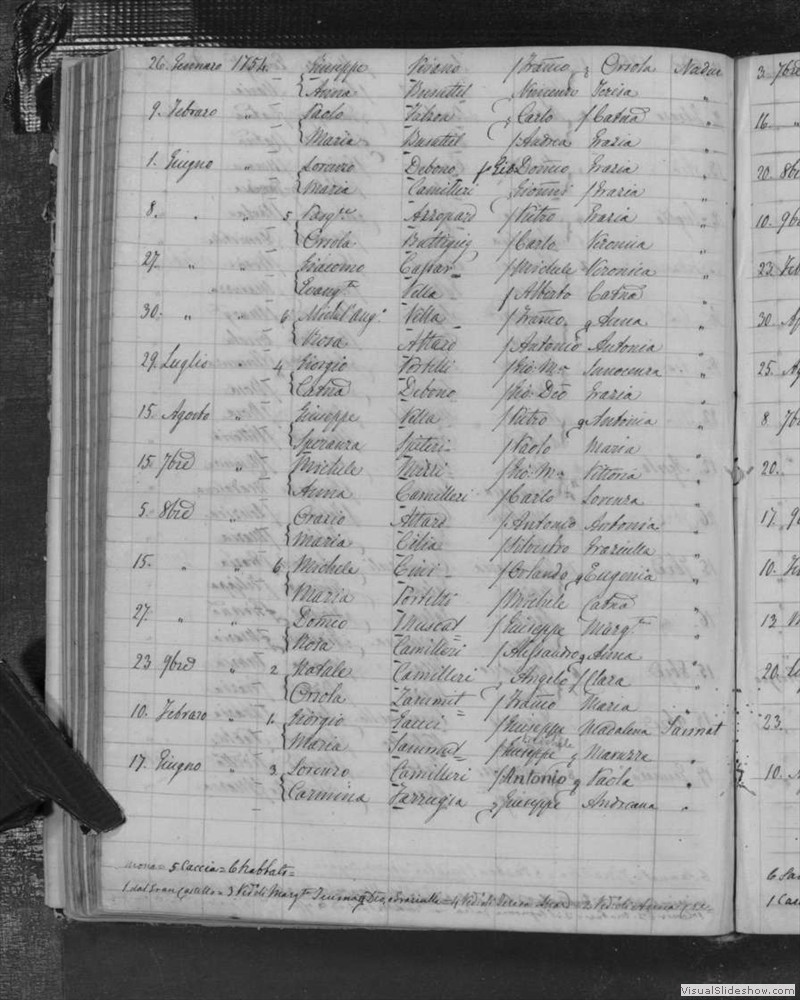 26. Gennaro 1754 Giuseppe Vivano f Franco q Orsola Nadur
Anna Busuttil Vincenzo Teresa "
9. Febraro " Paolo Carlo f Catna "
Maria Busuttil f Andrea Grazia "
1. Giugno " Lorenzo Debono f Gio Domco Grazia "
Maria Camilleri Gionni f Grazia "
8. " " 5 Pasqle Azzopard f Pietro Grazia "
Orsola Buttigieg f Carlo Veronica "
27. " " Giacomo Cassar f Michele Veronica "
Evangta Vella f Alberto Catna "
30. " " 6 Michel'ang° Vella f Franco q Anna "
Rosa Attard f Antonio Antonia "
29. Luglio " 4 Giorgio Portelli f Gio Ma Innocenza "
Catna Debono f Gio Dco Grazia "
15. Agosto " Giuseppe Vella f Pietro q Antonia "
Speranza Spiteri f Paolo Maria "
15. 7bre " Michele f Gio M. Vittoria "
Anna Camilleri f Carlo Lorenza "
5. 8bre " Orazio Attard f Antonio Antonia "
Maria Cilia f Silvestro Graziulla "
15. " " 6 Michele Cini f Orlando q Eugenia "
Maria Portelli f Michele Catna "
27. " " Domco Muscat f Giuseppe Margta "
Rosa Camilleri f Alessandro q Anna "
23. 9bre " 2 Natale Camilleri Angelo f Clara "
Orsola Zammit f Franco Maria "
10. Febraro " 1. Giorgio Gauci f Giuseppe Madalena Sannat
Maria Sammut f Giuseppe q Maruzza "
17. Giugno " 3 Lorenzo Camilleri f Antonio q Paola "
Carmina Farrugia q Giuseppe Andreana "
5 Caccia = 6 Rabbato =
1. dal Gran Castello = 3 Vedo di Margta
3. 7bre
16. "
20. 8bre
10. 9bre
23. Feb
30. Ap
25. Ag
8. 7b
20.
17. 9
10. Fe
13. M
20. Lu
23.
10. A
6 Sa
1. Cas
VisualSlideshow.com